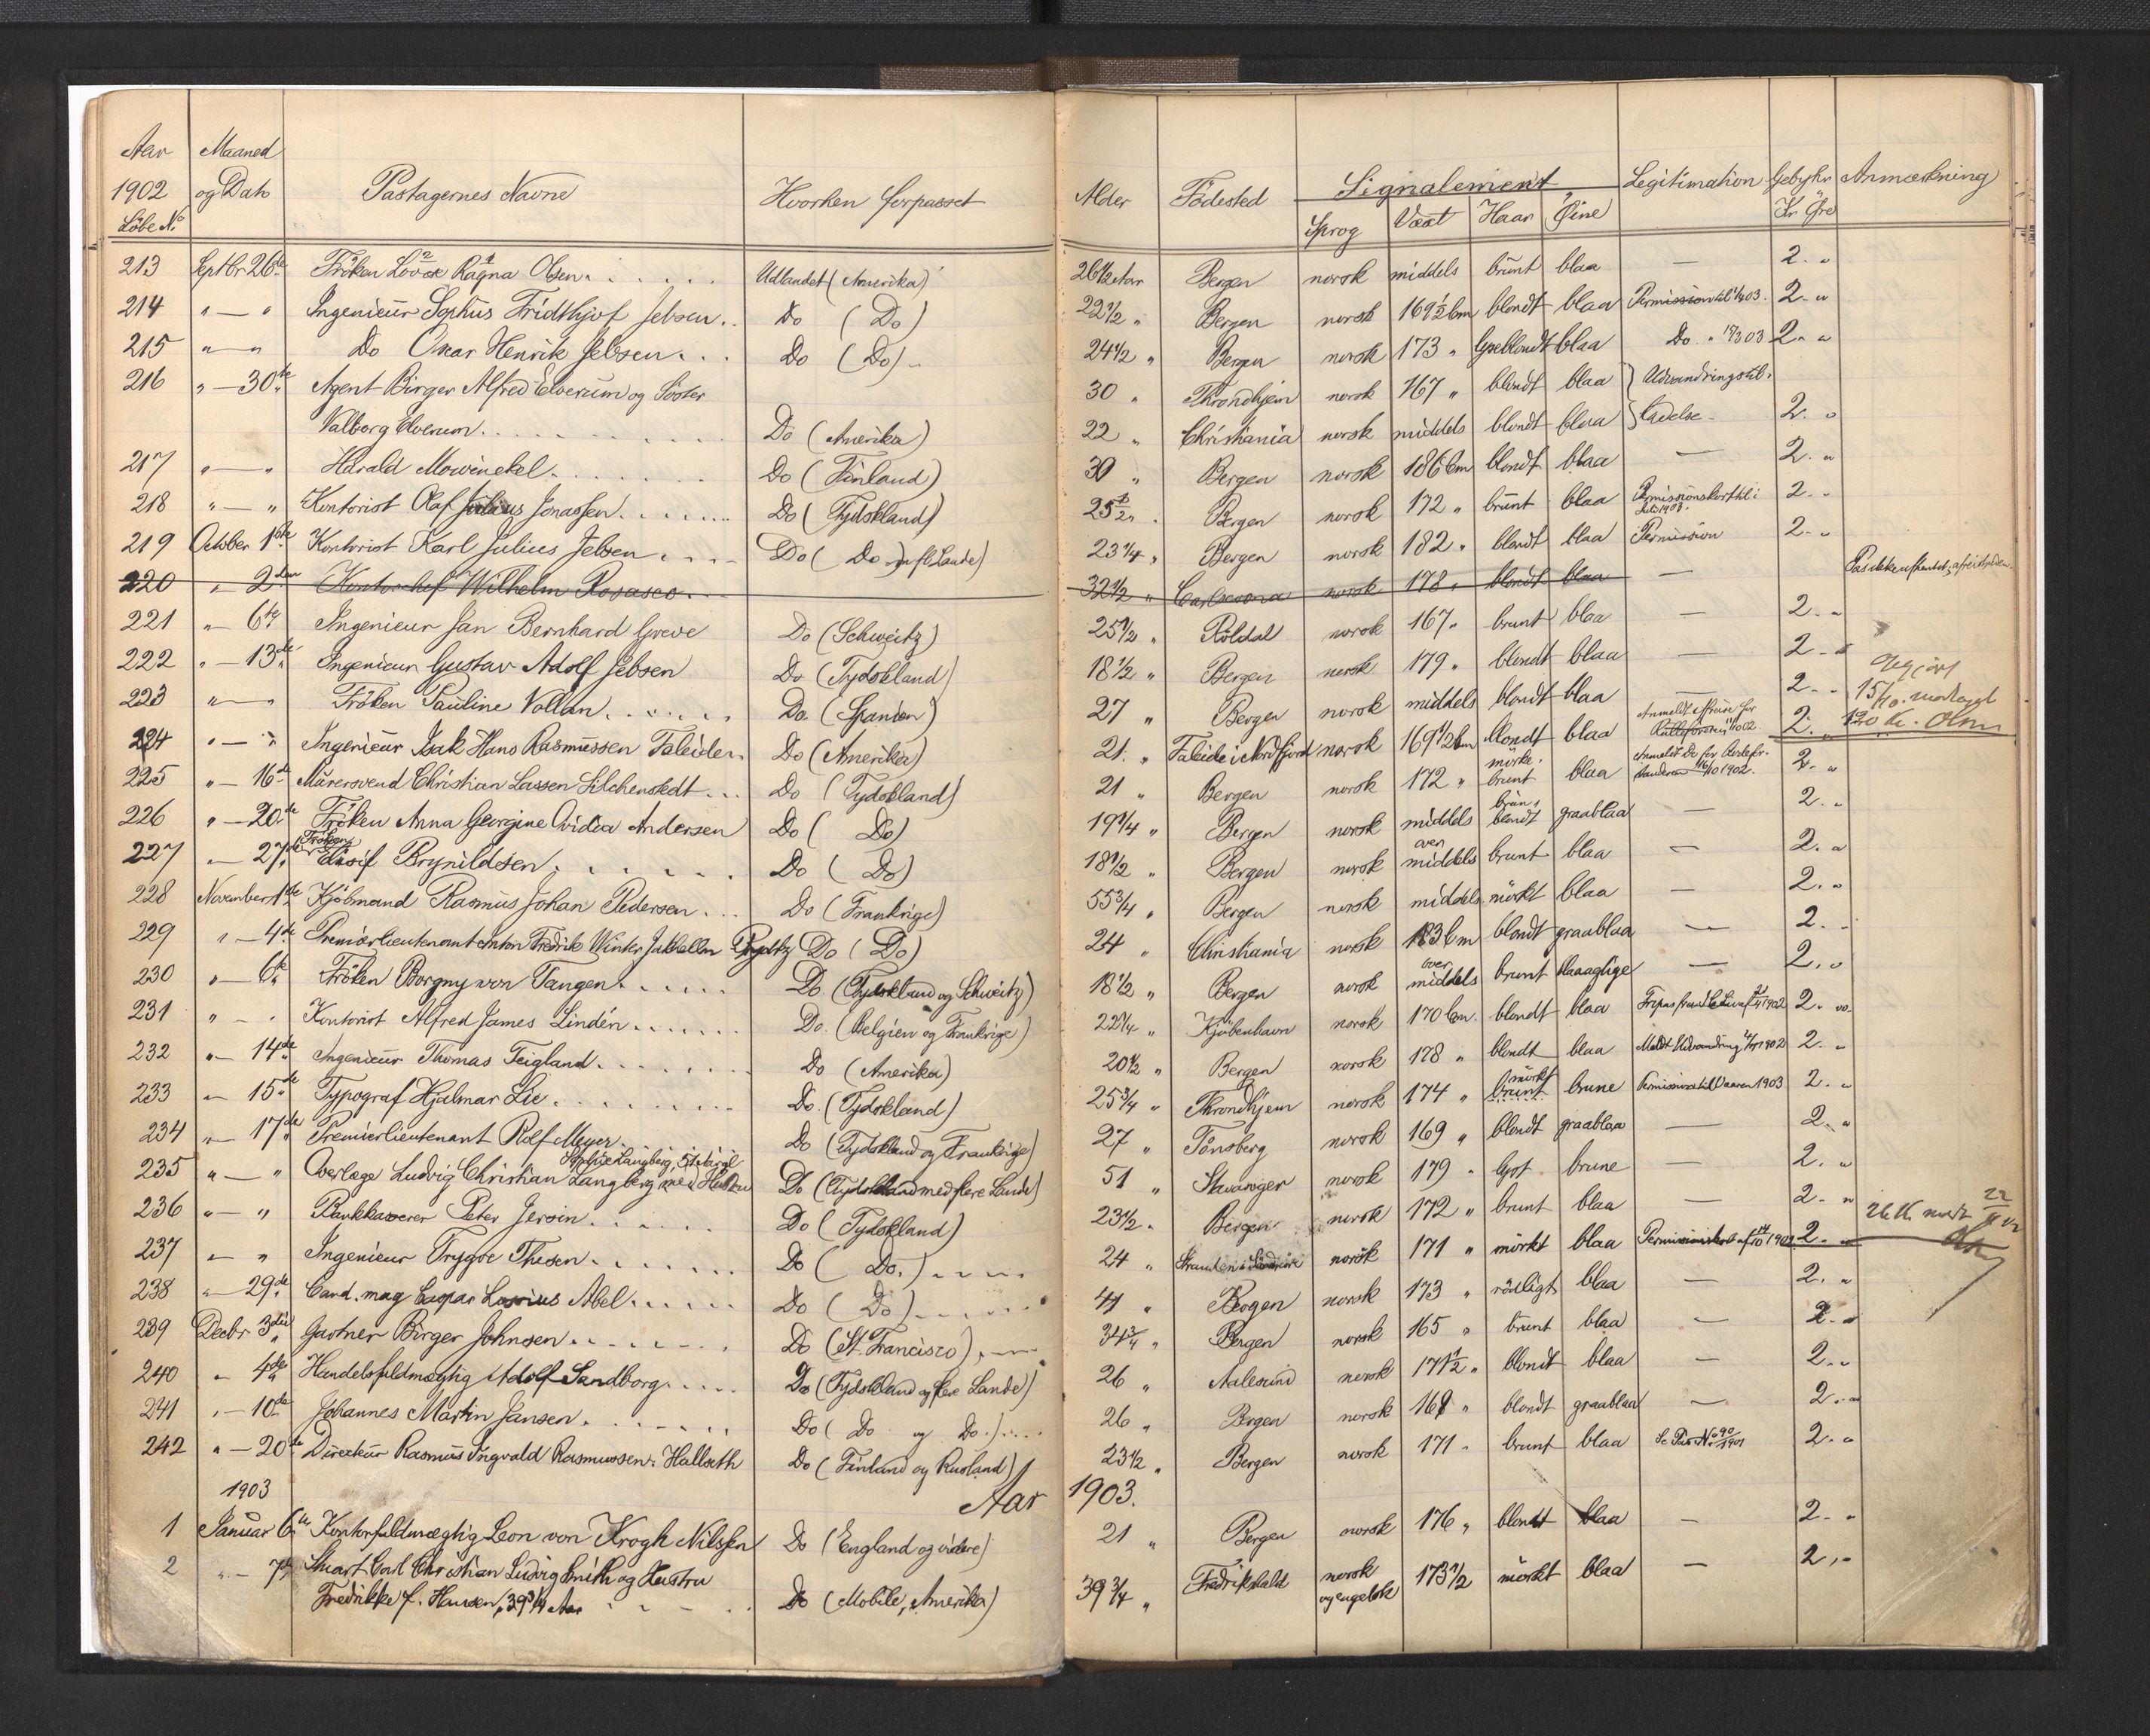 Aar Maaned
1902 og Dato Passagernes Navne Hvorhen forpasset Alder Födested Signalement Legitimation Gebyhr Anmærkning
Löbe No Sprog Væxt Haar Øine Kr Öre
213 Septbr 26de Fröken Ragna Olsen Udlandet (Amerika) 26 1/2 Aar Bergen norsk middels brunt blaa — 2. "
214 " — " Ingenieur Sophus Fridthjof Jebsen Do (Do) 22 1/2 " Bergen norsk 169 1/2 Cm blondt blaa Permission til 2. "
215 " — " Do Oscar Henrik Jebsen Do (Do) 24 1/2 " Bergen norsk 173 " lyseblondt blaa Do 2. "
216 " — 30te Agent Birger Alfred Elverum og Söster 30 " Throndhjem norsk 167 " blondt blaa } Udvandringstil-
Valborg Elverum Do (Amerika) 22 " Christiania norsk middels blondt blaa } ladelse 2. "
217 " — " Harald Mowinckel Do (Finland) 30 " Bergen norsk 186 Cm blondt blaa — 2. "
218 " — " Kontorist Olaf Julius Jonassen Do (Tydskland) 25 1/2 " Bergen norsk 172 " brunt blaa Permissionskort til 2. "
219 October 1ste Kontorist Karl Julius Jebsen Do (Do fl Lande) 23 1/4 " Bergen norsk 182 " blondt blaa Permission 2. "
220 " 2den Kontorchef Wilhelm Rosasco 32 1/2 " Carlscrona norsk 178 " blondt blaa — Pas ikke afhentet,
221 " — 6te Ingenieur Jan Bernhard Greve Do (Schweitz) 25 1/2 " Röldal norsk 167 " brunt blaa — 2. "
222 " — 13de Ingenieur Gustav Adolf Jebsen Do (Tydskland) 18 1/2 " Bergen norsk 179 " blondt blaa — 2. "
223 " — " Fröken Pauline Vollan Do. (Spanien) 27 " Bergen norsk middels blondt blaa — 2. " 15/10. modtaget
224 " — " Ingenieur Isak Hans Rasmussen Faleide Do (Amerika) 21. " Faleide i Nordfjord norsk 169 1/2 Cm blondt blaa 2. " 120 Kr. Olsen
225 " — 16de Murersvend Christian Lassen Silchenstedt Do (Tydskland) 21 " Bergen norsk 172 " mörke-brunt blaa 2. "
226 " — 20de Fröken Anna Georgine Ovidia Andersen Do (Do) 19 1/4 " Bergen norsk middels brun-blondt graablaa — 2. "
227 " — 27de Fröken Elisif Brynildsen Do (Do) 18 1/2 " Bergen norsk over middels brunt blaa — 2. "
228 November 1ste Kjöbmand Rasmus Johan Pedersen Do (Frankrige) 55 3/4 " Bergen norsk middels mörkt blaa — 2. "
229 " — 4de Premierlieutenant Anton Fredrik Winter Jakhelln Prydtz Do (Do) 24 " Christiania norsk 183 Cm blondt graablaa — 2. "
230 " — 6te Fröken Borgny von Tangen Do (Tydskland og Schweitz) 18 1/2 " Bergen norsk over middels brunt blaaaglige — 2. "
231 " — " Kontorist Alfred James Lindén Do. (Belgien og Frankrige) 22 1/4 " Kjöbenhavn norsk 170 Cm. blondt blaa 2. "
232 " — 14de Ingenieur Thomas Teigland Do (Amerika) 20 1/2 " Bergen norsk 178 " blondt blaa Meldt Udvandring 1902 2. "
233 " — 15de Typograf Hjalmar Lie Do. (Tydskland) 25 3/4 " Throndhjem norsk 174 " mörkt brunt brune Permission til Vaaren 1903 2. "
234 " — 17de Premierlieutenant Rolf Meyer Do (Tydskland og Frankrige) 27 " Tönsberg norsk 169 " blondt graablaa — 2. "
Sophie Langberg,
235 " — " Overlæge Ludvig Christian Langberg med Hustru Do (Tydskland med flere Lande) 51 " Stavanger norsk 179 " brune — 2. "
236 " — " Bankkasserer Peter Jersin Do (Tydskland) 23 1/2 " Bergen norsk 172 " brunt blaa — 2. "
237 " — " Ingenieur Trygve Thesen Do (Do.) 24 " norsk 171 " mörkt blaa 2. "
238 " — 29de Cand. mag Caspar Abel Do (Do) 41 " Bergen norsk 173 " rödligt blaa — 2. "
239 Decbr 3die Gartner Birger Johnsen Do (St. Francisco) 34 3/4 " Bergen norsk 165 " brunt blaa — 2. "
240 " 4de Handelsfuldmægtig Adolf Sandborg Do (Tydskland og flere Lande) 26 " Aalesund norsk 171 1/2 " blondt blaa — 2. "
241 " — 10de Johannes Martin Jansen Do (Do og Do.) 26 " Bergen norsk 168 " blondt graablaa — 2. "
242 " — 20de Directeur Rasmus Ingvald Rasmussen Hallseth Do (Finland og Rusland) 23 1/2 " Bergen norsk 171 " brunt blaa Se Pas No 90/1901 2. "
1903 Aar 1903.
1 Januar 6te Kontorfuldmægtig Leon von Krogh Nilssen Do (England og videre) 21 " Bergen norsk 176 " blondt blaa — 2. "
2 " — 7de Stuart Carl Christian Ludvig Smith og Hustru Fredrikshald norsk 173 1/2 mörkt blaa — 2. "
Fredrikke f. Hansen, 39 3/4 Aar Do (Mobile, Amerika) 39 3/4 " og engelsk